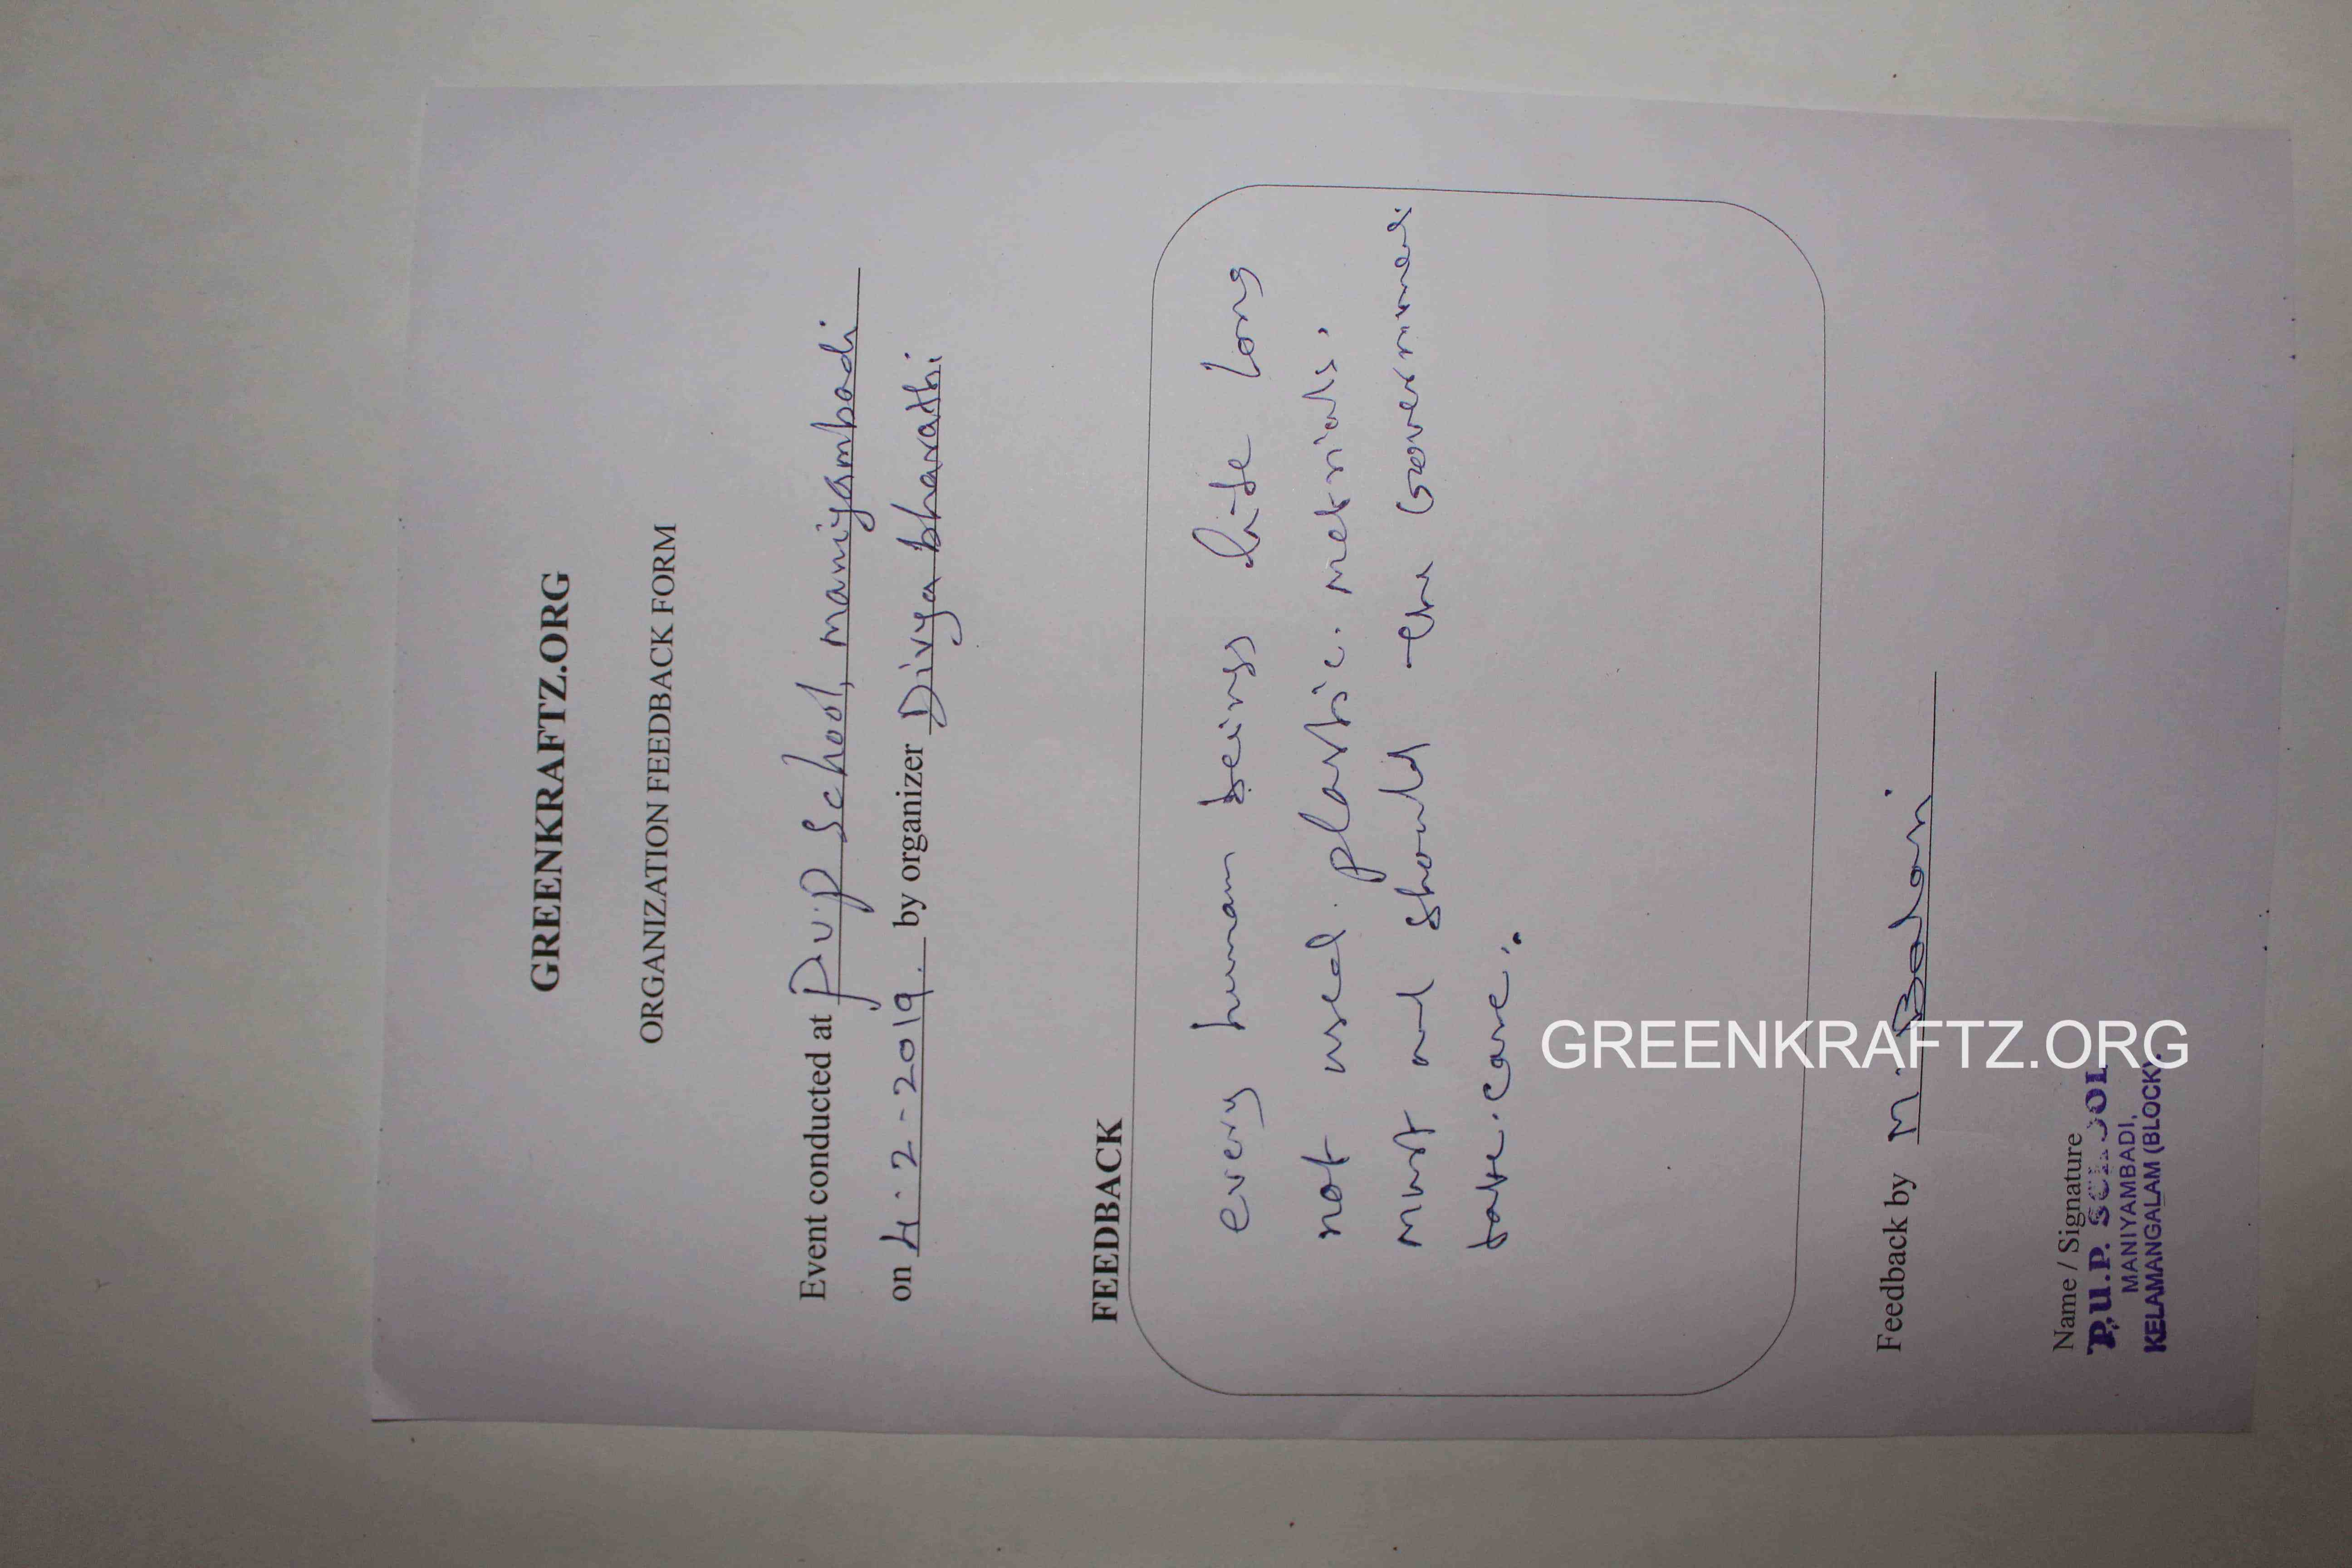 GREENKRAFTZ.ORG
ORGANIZATION FEEDBACK FORM
Event conducted at P.U.P School, maniyambadi
on 4.2-2019. by organizer Divya bharathi
FEEDBACK
every human beings life long
not used. plastic. metrials.
must and should the Government
take. care.
Feedback by M.
Name / Signature
P.U.P. SCHOOL
MANIYAMBADI,
KELAMANGALAM (BLOCK).
GREENKRAFTZ.ORG